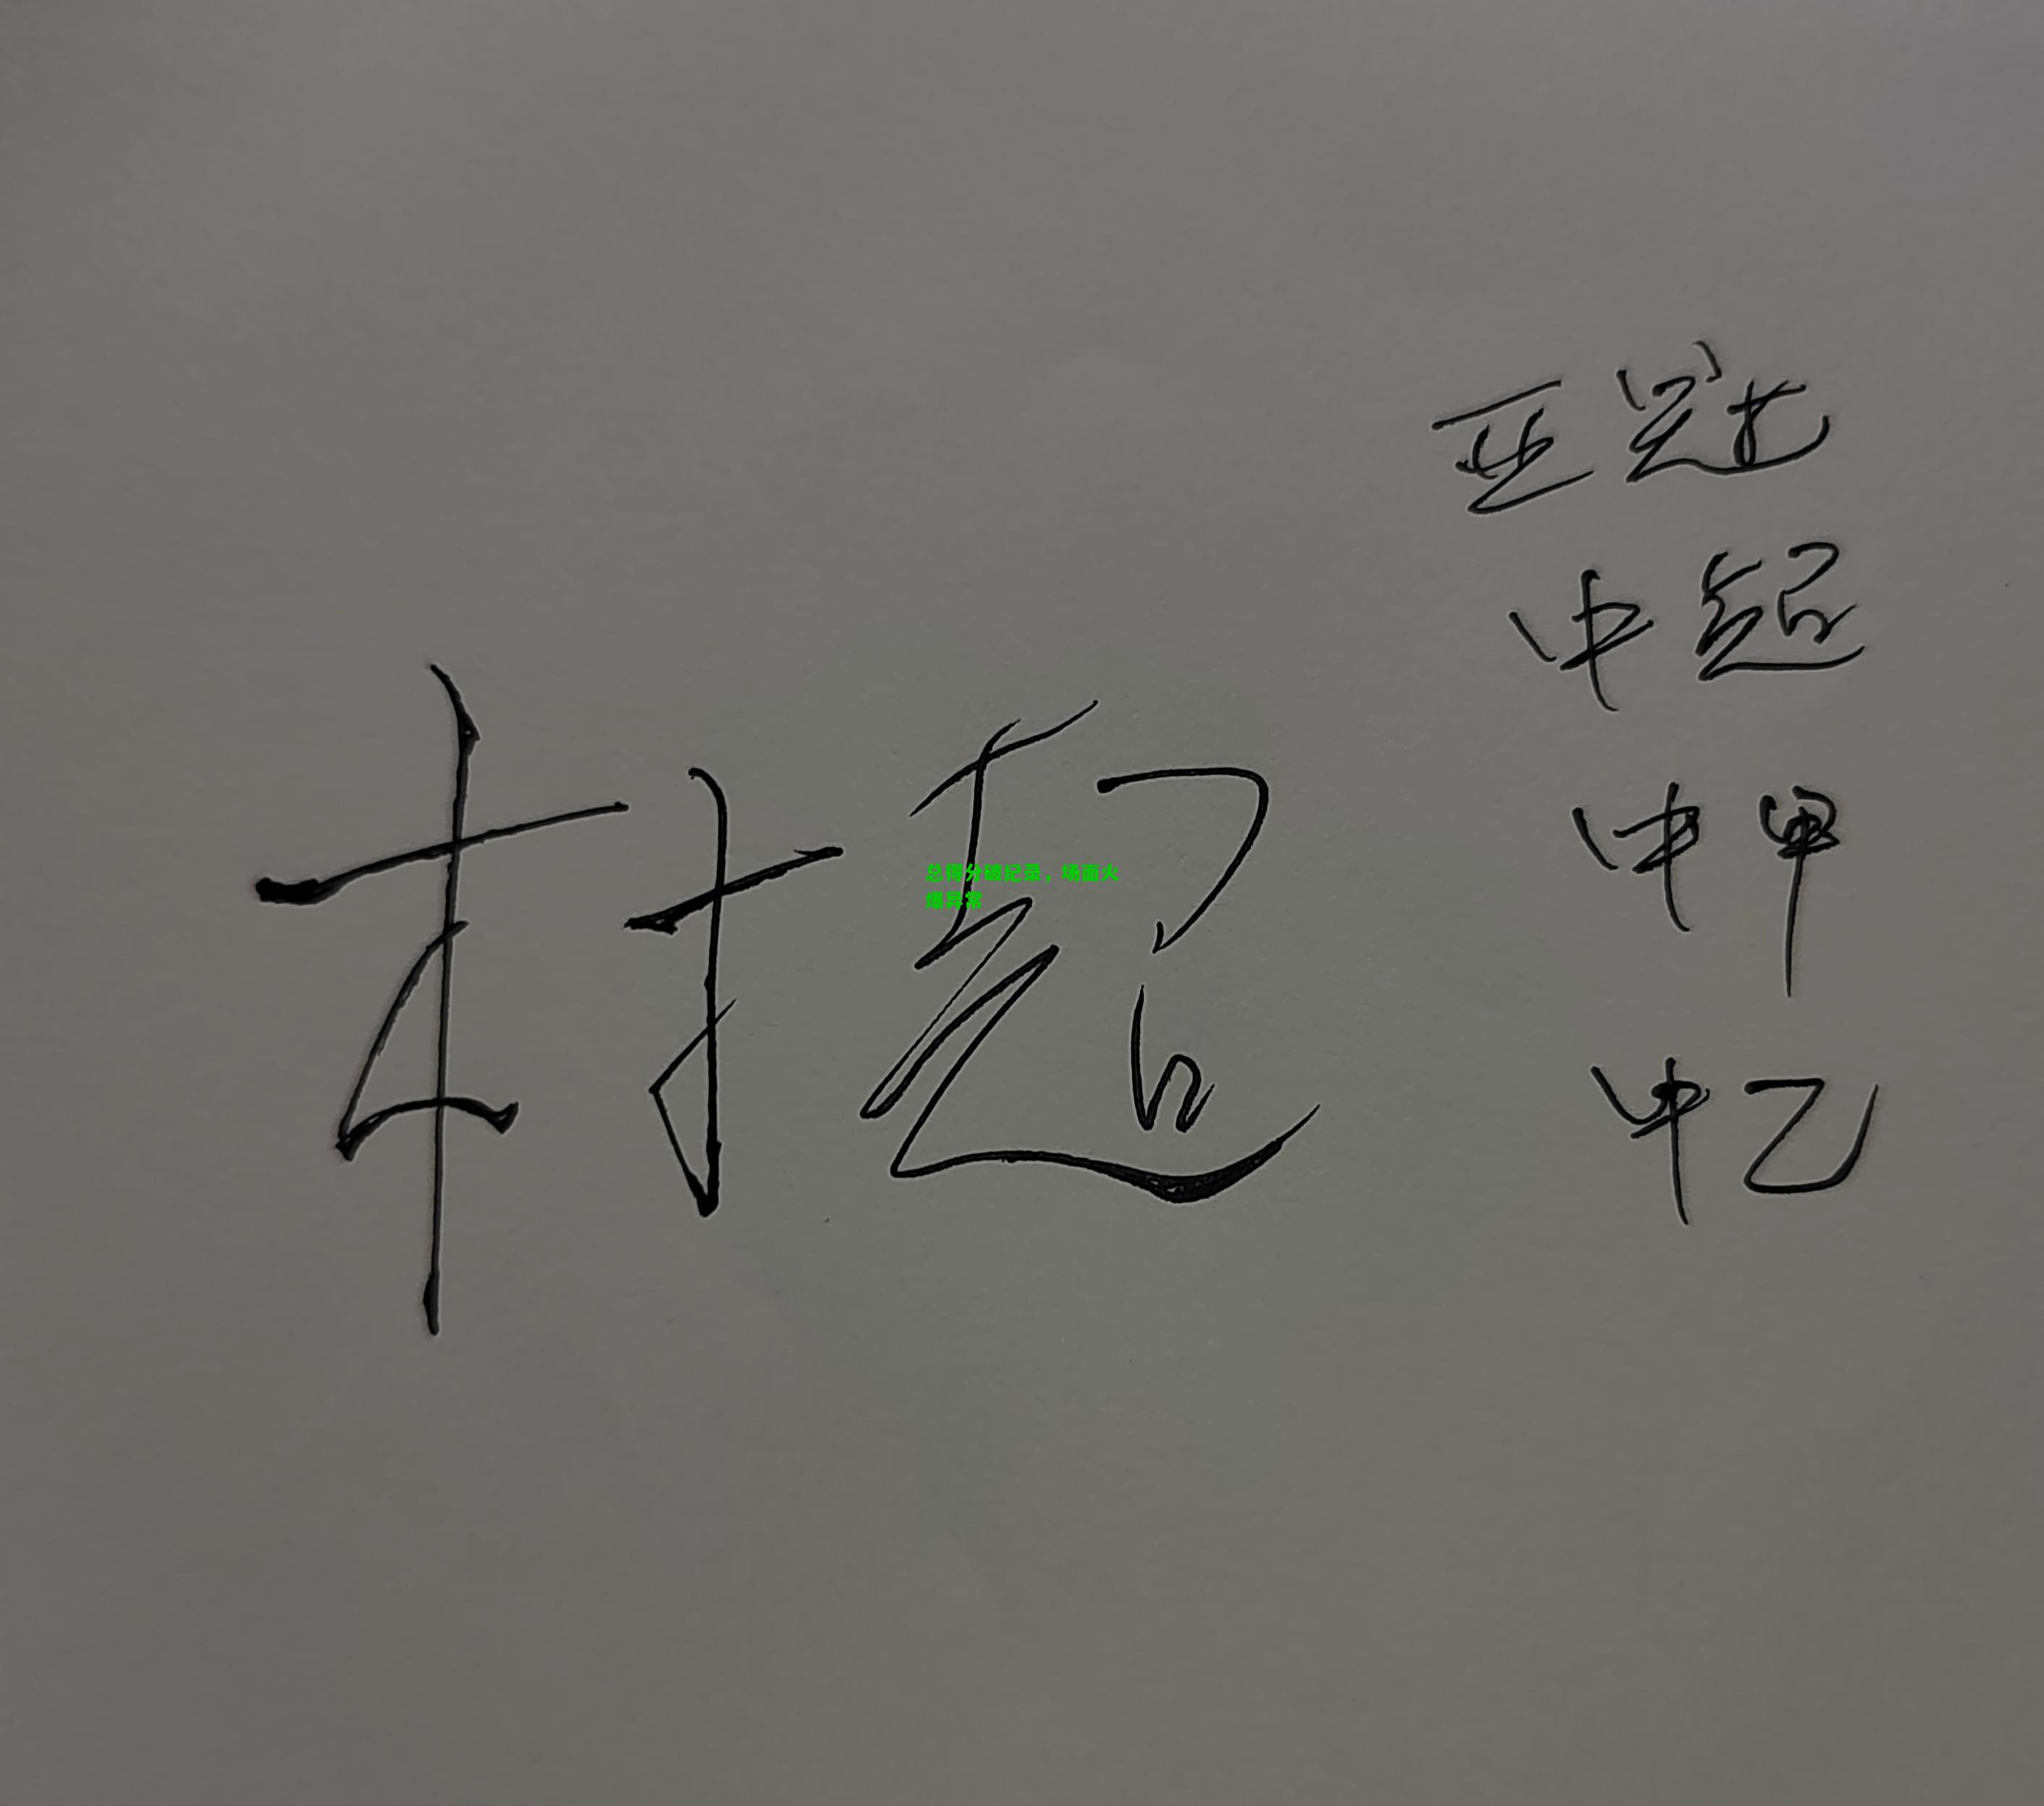 村超
总得分破纪录，场面火
爆异常
亚冠
中超
中甲
中乙